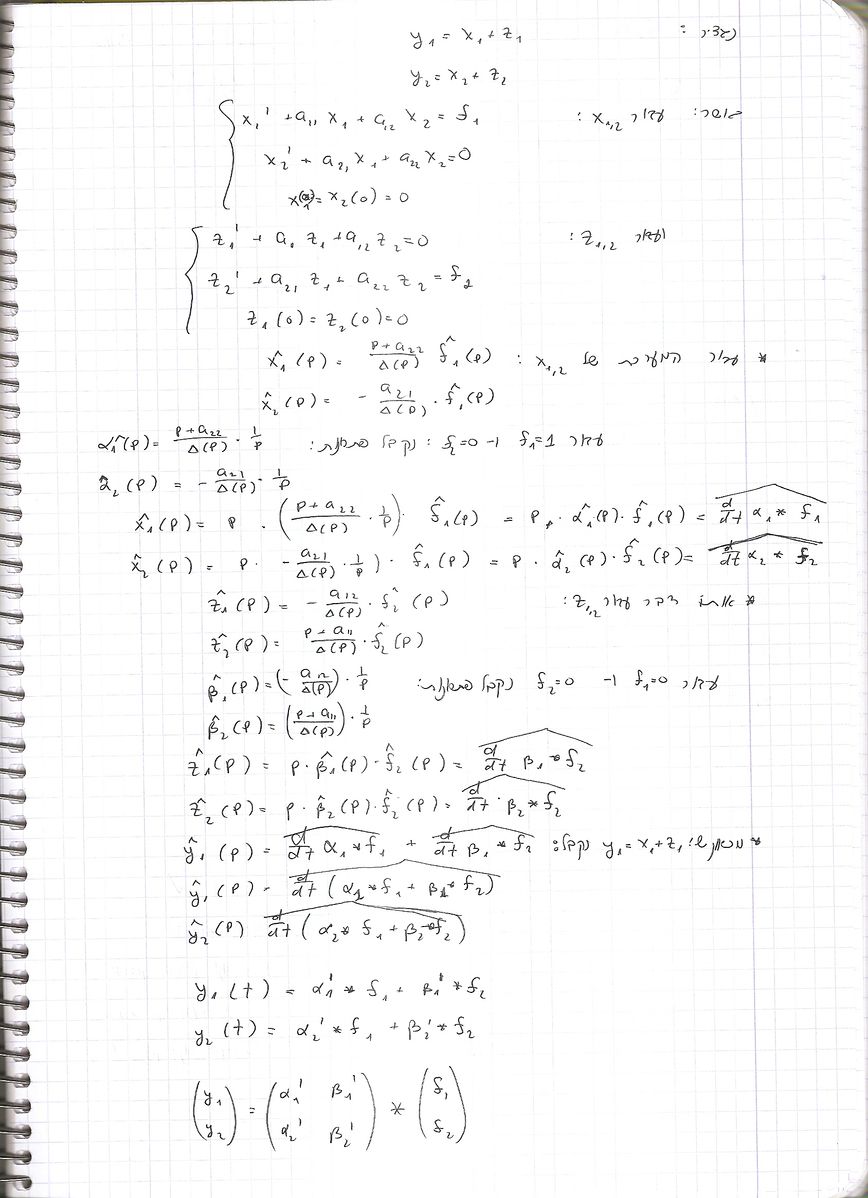 נגדיר : y₁ = x₁ + z₁
y₂ = x₂ + z₂
כאשר: עבור x₁,₂ : { x₁' + a₁₁ x₁ + a₁₂ x₂ = f₁
x₂' + a₂₁ x₁ + a₂₂ x₂ = 0
x₁(0) = x₂(0) = 0
ועבור z₁,₂ : { z₁' + a₁ z₁ + a₁₂ z₂ = 0
z₂' + a₂₁ z₁ + a₂₂ z₂ = f₂
z₁(0) = z₂(0) = 0
* עבור המערכת של x₁,₂ : x̂₁(p) = (p+a₂₂)/Δ(p) f̂₁(p)
x̂₂(p) = - a₂₁/Δ(p) · f̂₁(p)
עבור f₁=1 ו- f₂=0 : נקבל פתרונות: α̂₁(p) = (p+a₂₂)/Δ(p) · 1/p
α̂₂(p) = - a₂₁/Δ(p) · 1/p
x̂₁(p) = p · ((p+a₂₂)/Δ(p) · 1/p) · f̂₁(p) = p · α̂₁(p) · f̂₁(p) = d/dt α₁ * f₁
x̂₂(p) = p · - a₂₁/Δ(p) · 1/p) · f̂₁(p) = p · α̂₂(p) · f̂₂(p) = d/dt α₂ * f₂
* אותו דבר עבור z₁,₂ : ẑ₁(p) = - a₁₂/Δ(p) · f̂₂(p)
ẑ₂(p) = (p+a₁₁)/Δ(p) · f̂₂(p)
עבור f₁=0 ו- f₂=0 נקבל פתרונות: β̂₁(p) = (- a₁₂/Δ(p)) · 1/p
β̂₂(p) = ((p+a₁₁)/Δ(p)) · 1/p
ẑ₁(p) = p · β̂₁(p) · f̂₂(p) = d/dt β₁ * f₂
ẑ₂(p) = p · β̂₂(p) · f̂₂(p) = d/dt · β₂ * f₂
* y₁=x₁+z₁ נקבל: ŷ₁(p) = d/dt α₁ * f₁ + d/dt β₁ * f₂
ŷ₁(p) - d/dt (α₁ * f₁ + β₁ * f₂)
ŷ₂(p) d/dt (α₂ * f₁ + β₂ * f₂)
y₁(t) = α₁' * f₁ + β₁' * f₂
y₂(t) = α₂' * f₁ + β₂' * f₂
(y₁) = (α₁' β₁') * (f₁)
(y₂) (α₂' β₂') (f₂)